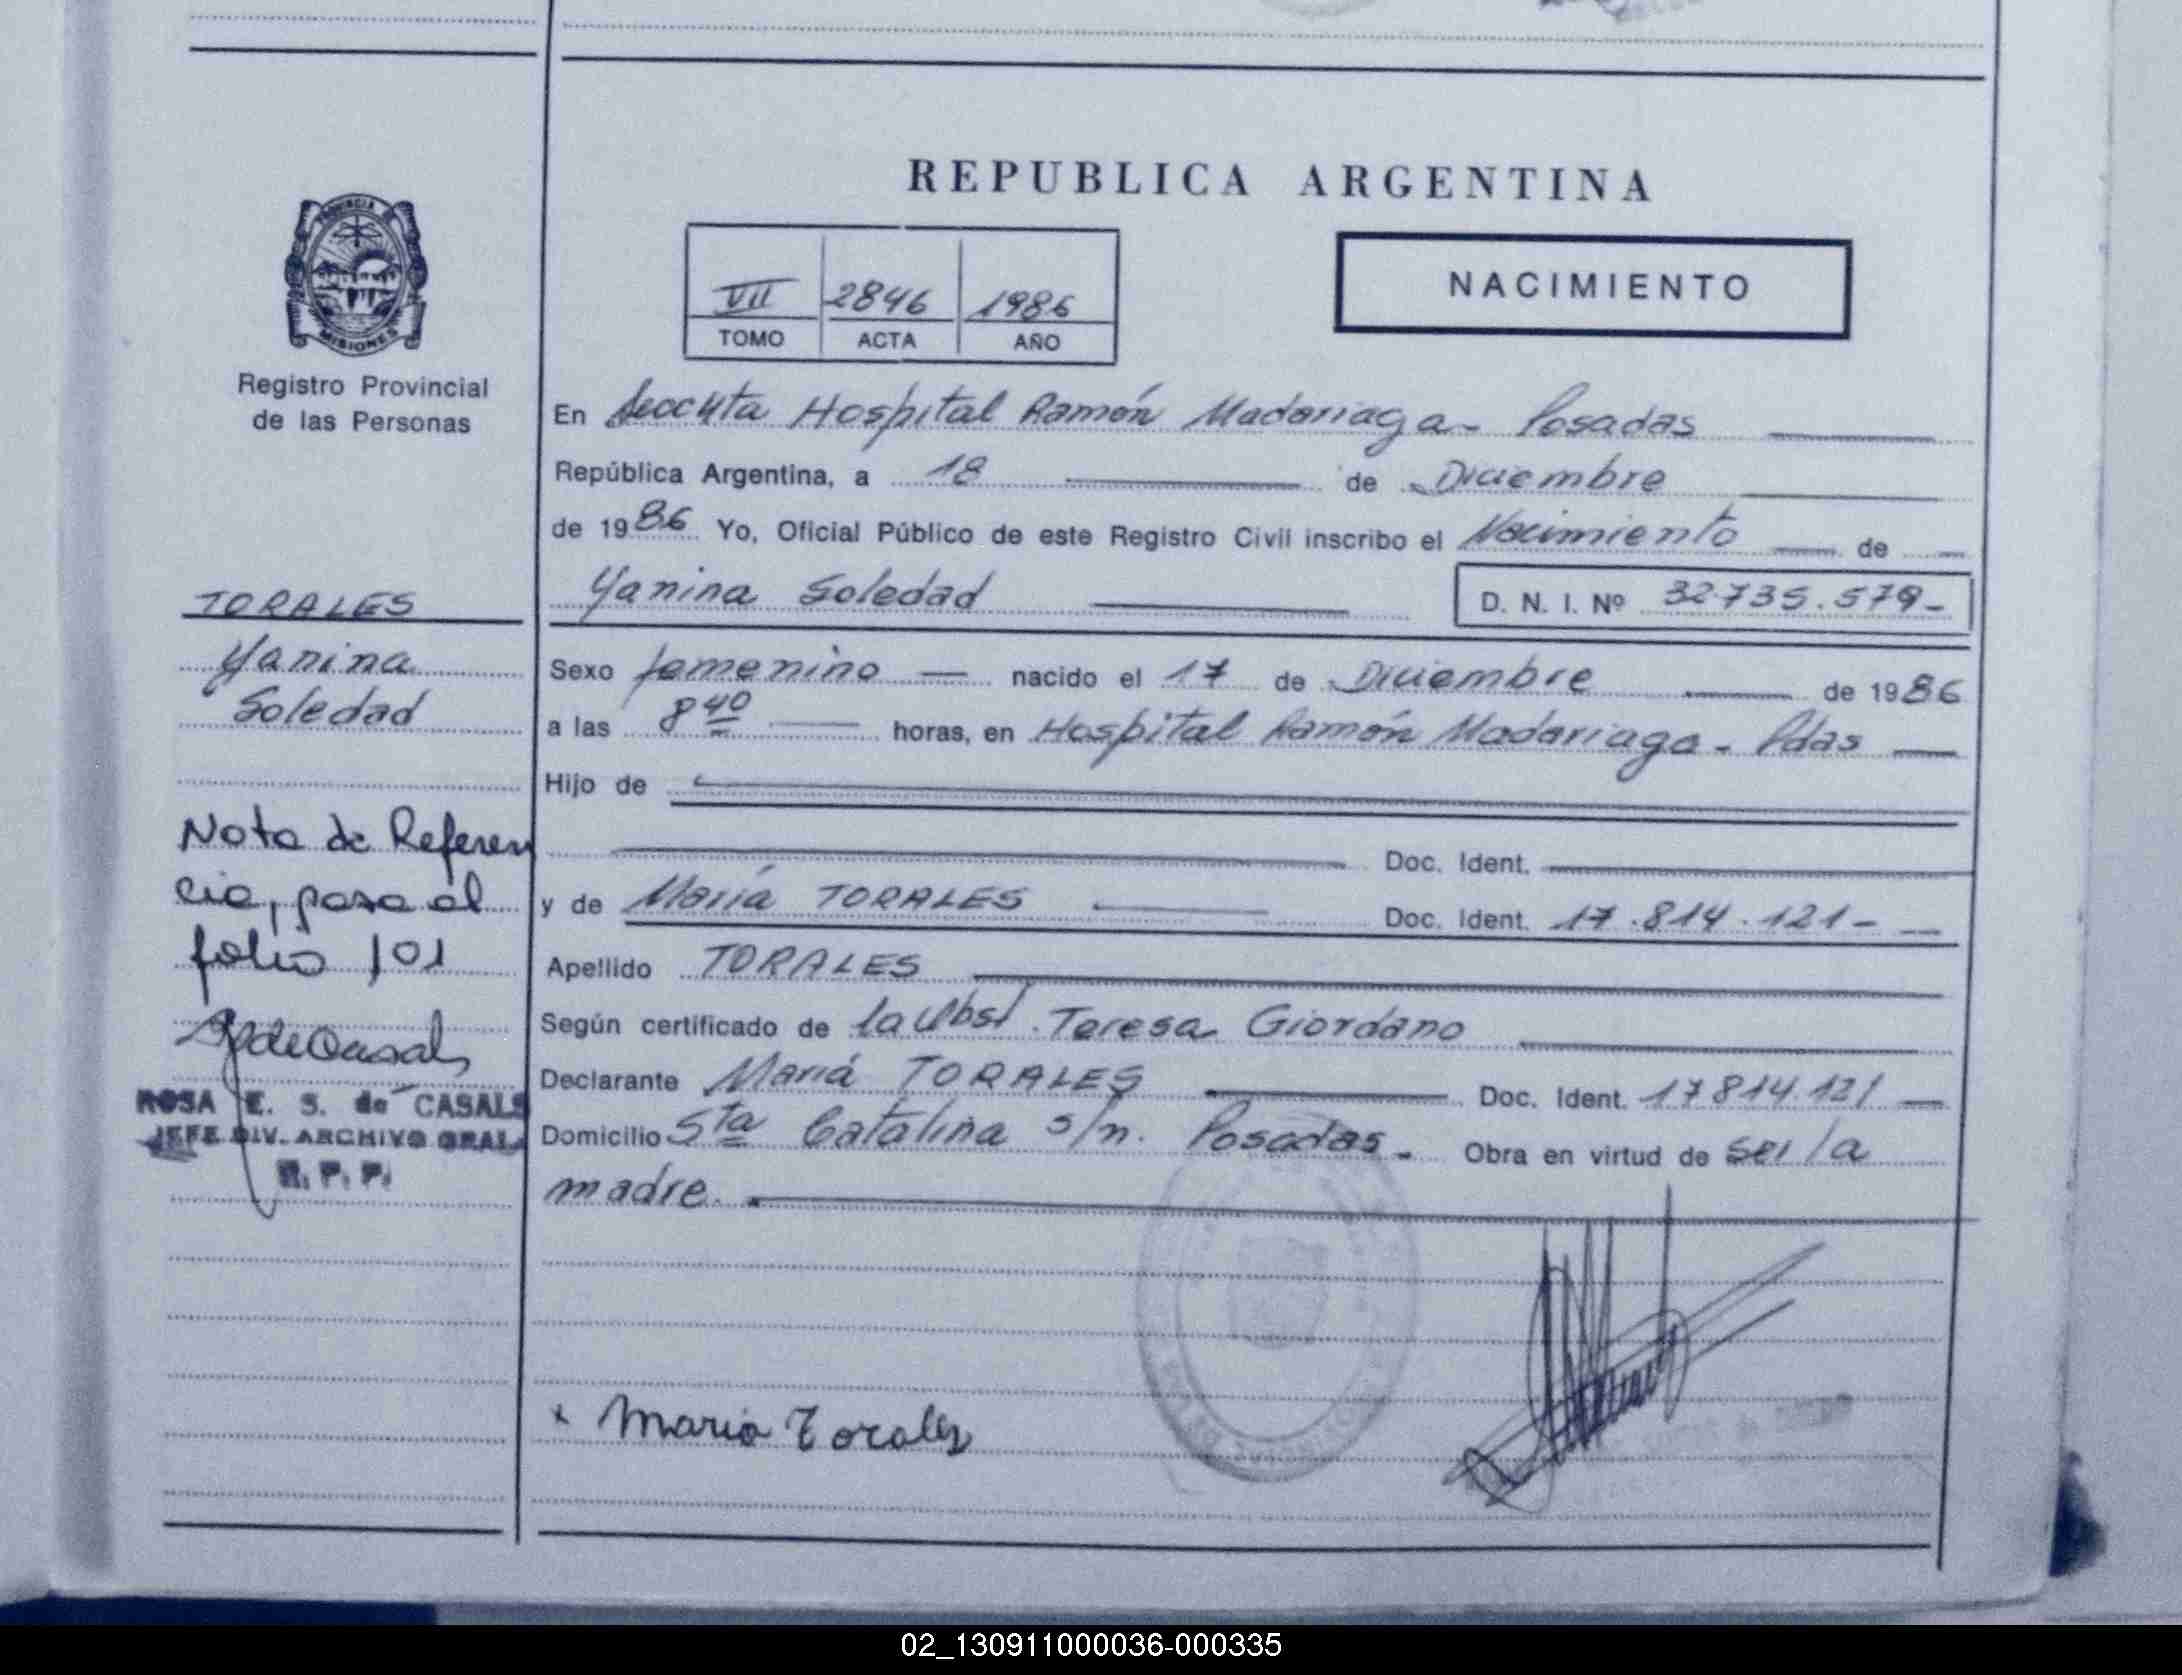 REPUBLICA ARGENTINA
PROVINCIA DE
MISIONES
Registro Provincial
de las Personas
VII 2846 1986
TOMO ACTA AÑO
NACIMIENTO
En Hospital Ramón Madariaga - Posadas
República Argentina, a 18 de Diciembre
de 1986 Yo, Oficial Público de este Registro Civil inscribo el Nacimiento de
Yanina Soledad D. N. I. Nº 32.735.579-
TORALES
Yanina
Soledad
Sexo femenino nacido el 17 de Diciembre de 1986
a las 8 40 horas, en Hospital Ramón Madariaga - Pdas
Hijo de
Doc. Ident.
y de María TORALES Doc. Ident. 17.814.121-
Apellido TORALES
Según certificado de la Obst. Teresa Giordano
Declarante María TORALES Doc. Ident. 17814.121
Domicilio Sta Catalina s/n. Posadas. Obra en virtud de ser la
madre.
Nota de Referen
cia, pasa al
folio 101
ROSA E. S. de CASALS
JEFE DIV. ARCHIVO GRAL.
R. P. P.
x Maria Torales
02_130911000036-000335